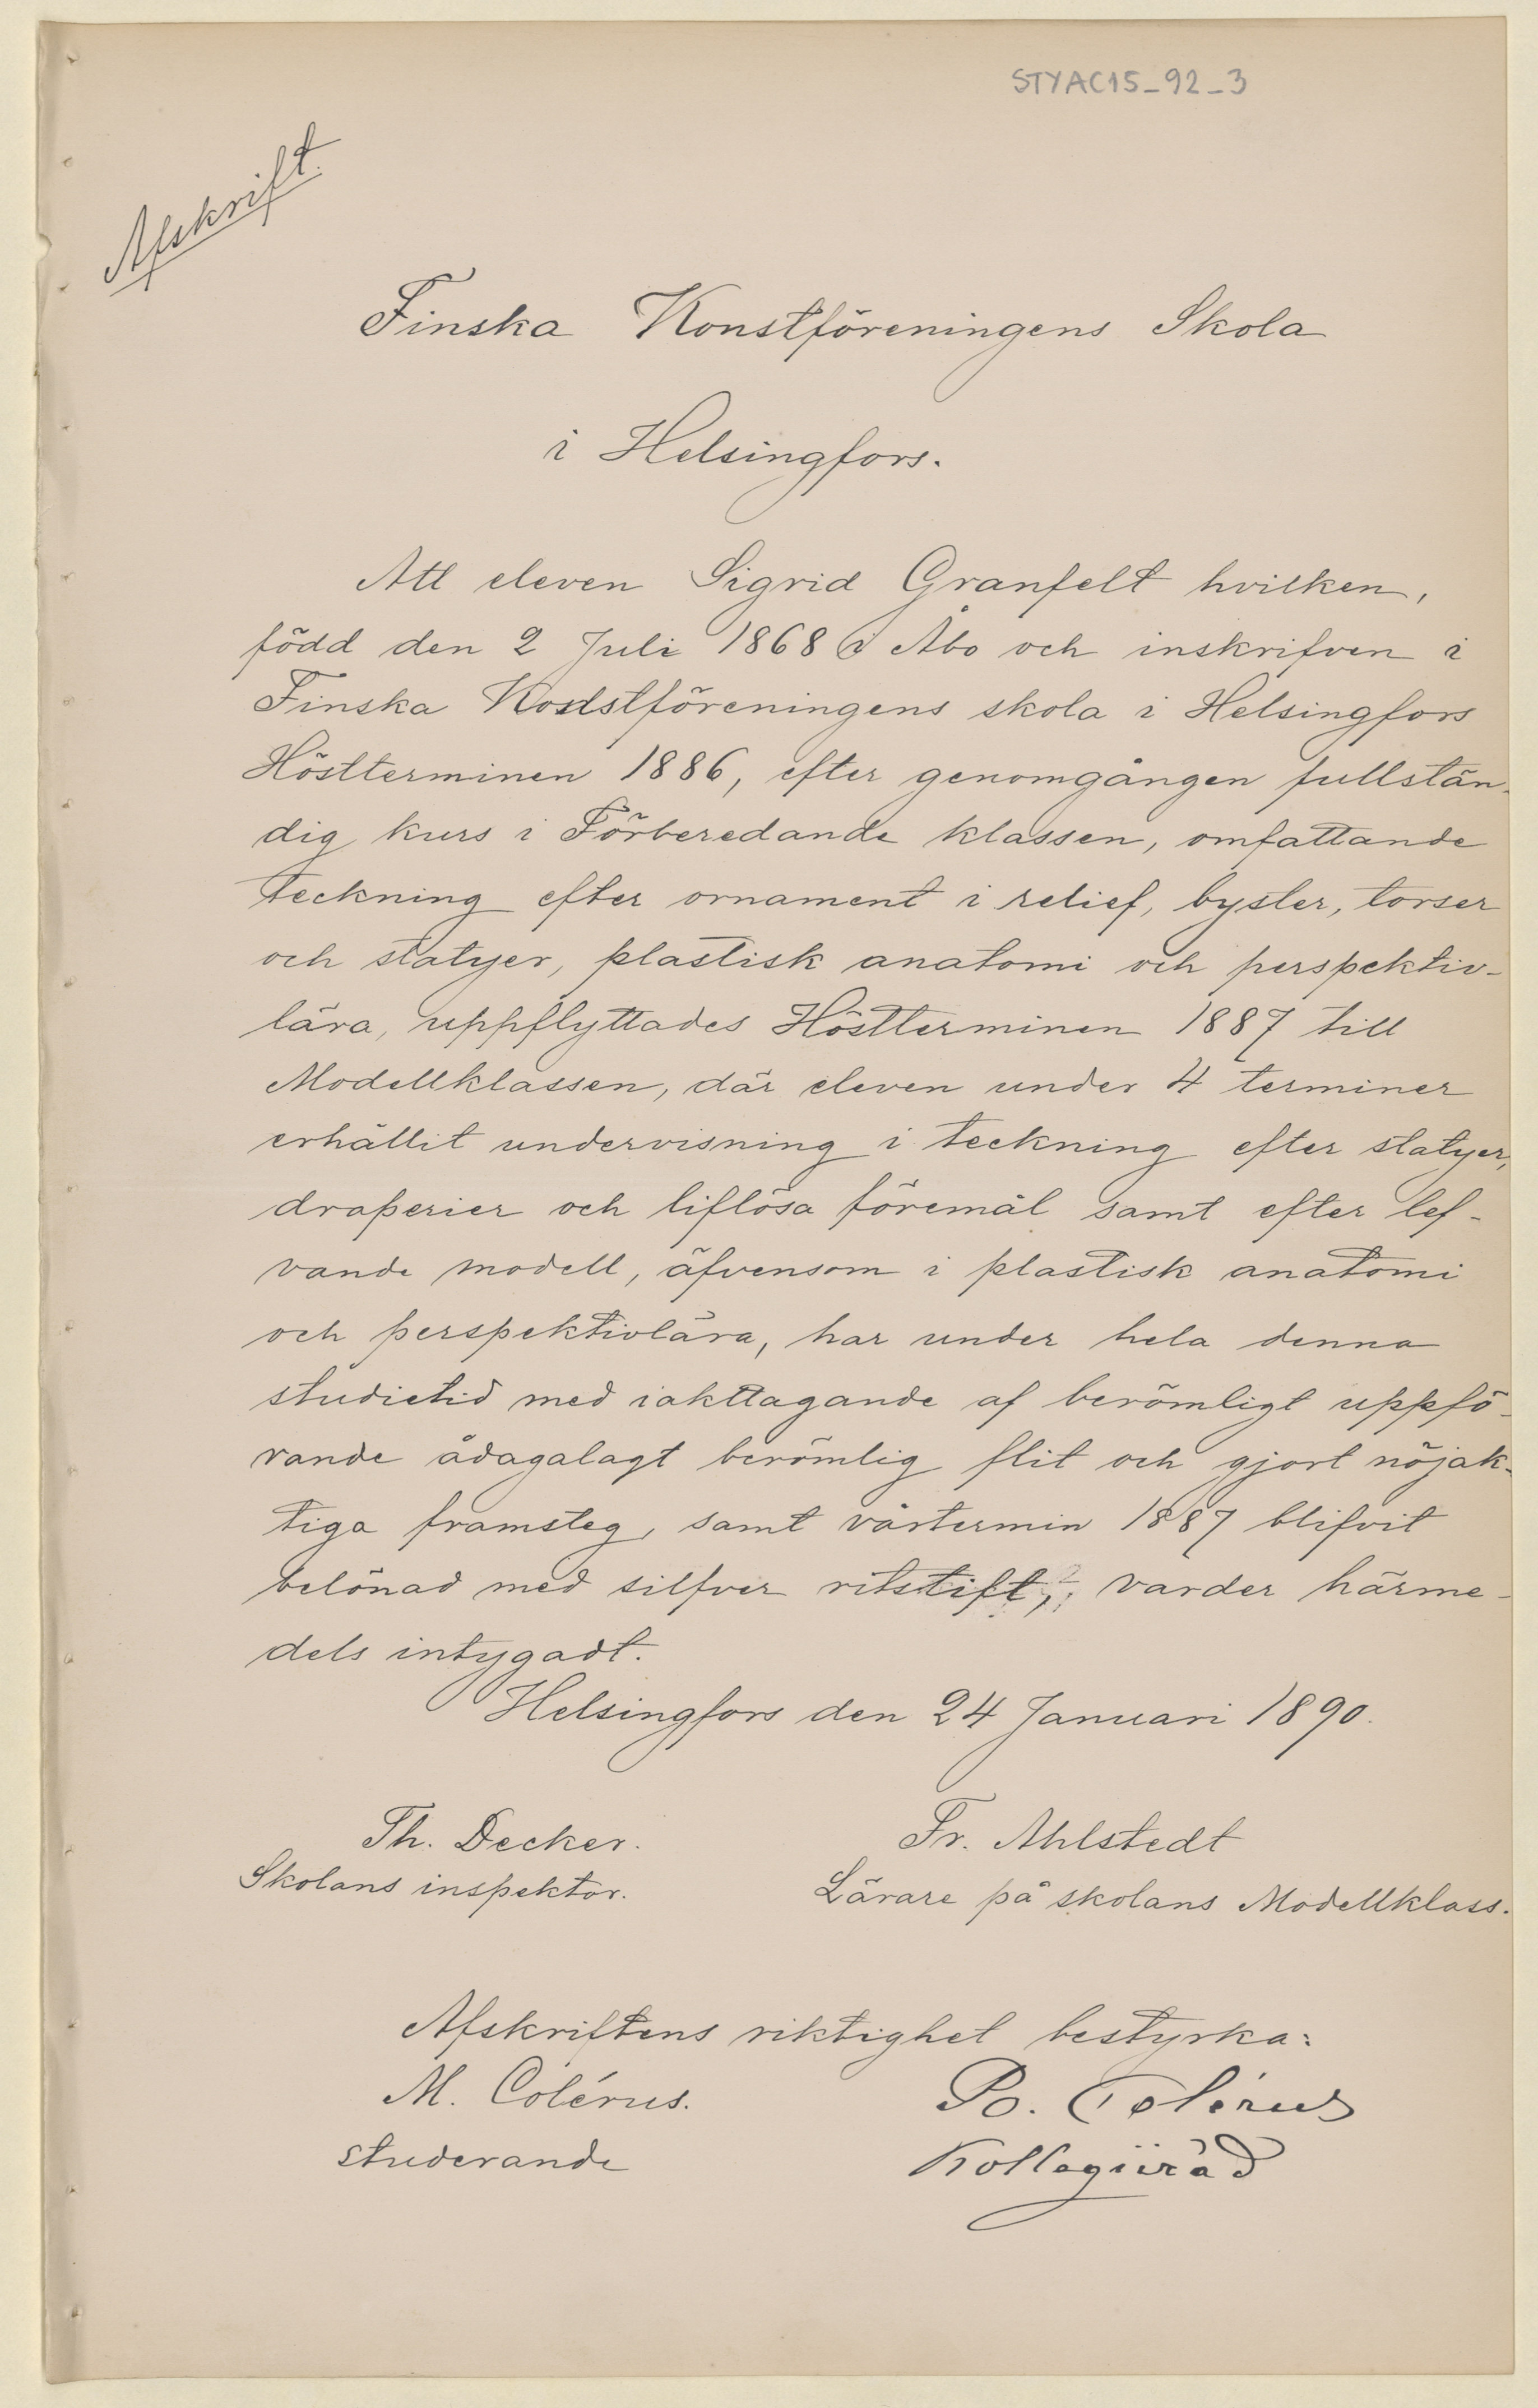 STYAC15_92_3
Afskrift.
Finska Konstföreningens Skola
i Helsingfors.
Att eleven Sigrid Granfelt hvilken,
född den 2 Juli 1868 i Åbo och inskrifven i
Finska Konstföreningens skola i Helsingfors
Höstterminen 1886, efter genomgången fullstän-
dig kurs i Förberedande klassen, omfattande
teckning efter ornament i relief, byster, torser
och statyer, plastisk anatomi och perspektiv-
lära, uppflyttades Höstterminen 1887 till
Modellklassen, där eleven under 4 terminer
erhållit undervisning i teckning efter statyer,
draperier och liflösa föremål samt efter lef-
vande modell, äfvensom i plastisk anatomi
och perspektivlära, har under hela denna
studietid med iakttagande af berömligt uppfö-
rande ådagalagt berömlig flit och gjort nöjak-
tiga framsteg, samt vårtermin 1887 blifvit
belönad med silfver ritstift, varder härme-
dels intygadt.
Helsingfors den 24 Januari 1890.
Th. Decker. Fr. Ahlstedt
Skolans inspektor. Lärare på skolans Modellklass.
Afskriftens riktighet bestyrka:
M. Colérus. Po. Colérus
studerande Kollegiiråd